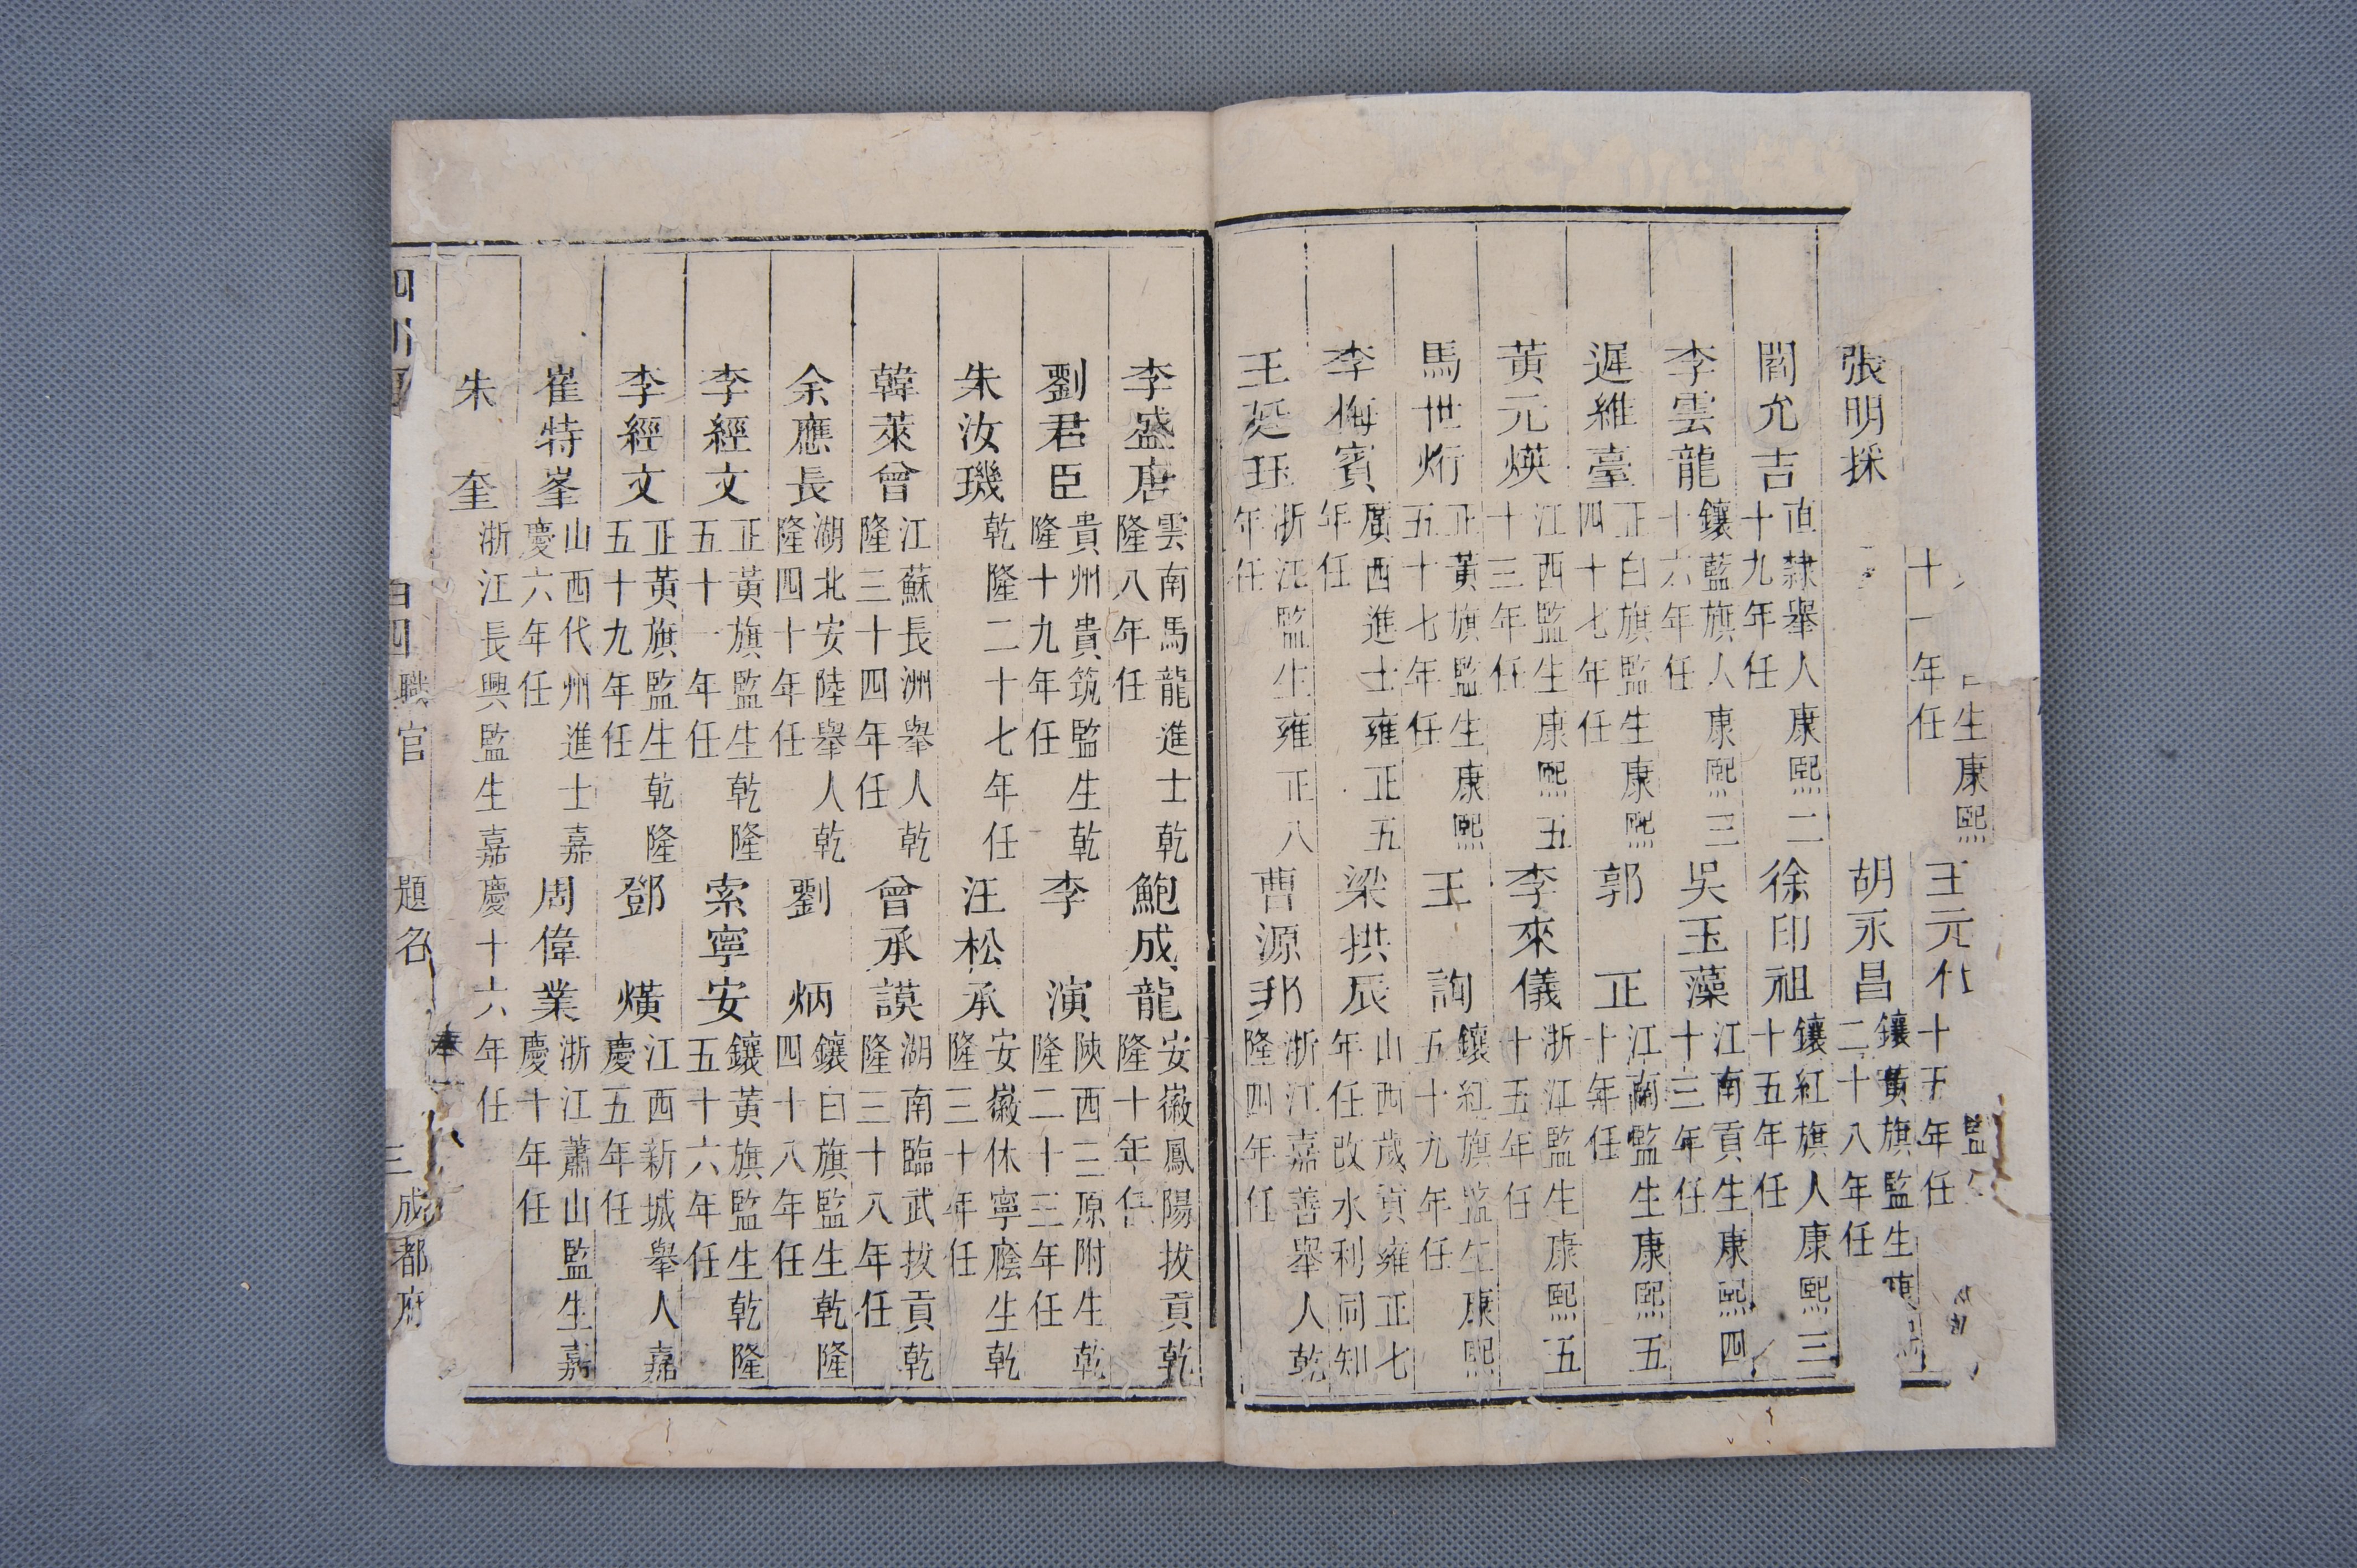 生康熙
十一年任
王元
十五年任
張明採
胡永昌
鑲黃旗監生
二十八年任
閻允吉
直隸舉人康熙二
十九年任
徐印祖
鑲紅旗人康熙三
十五年任
李雲龍
鑲藍旗人康熙三
十六年任
吳玉藻
江南貢生康熙四
十三年任
遲維臺
正白旗監生康熙
四十七年任
郭正
江南監生康熙五
十年任
黃元煐
江西監生康熙五
十三年任
李來儀
浙江監生康熙五
十五年任
馬世烆
正黃旗監生康熙
五十七年任
王詢
鑲紅旗監生康熙
五十九年任
李梅賓
廣西進士雍正五
年任
梁拱辰
山西歲貢雍正七
年任改水利同知
王廷珏
浙江監生雍正八
年任
曹源邦
浙江嘉善舉人乾
隆四年任
李盛唐
雲南馬龍進士乾
隆八年任
鮑成龍
安徽鳳陽拔貢乾
隆十年任
劉君臣
貴州貴筑監生乾
隆十九年任
李演
陝西三原附生乾
隆二十三年任
朱汝璣
乾隆二十七年任
汪松承
安徽休寧廕生乾
隆三十年任
韓萊曾
江蘇長洲舉人乾
隆三十四年任
曾承謨
湖南臨武拔貢乾
隆三十八年任
余應長
湖北安陸舉人乾
隆四十年任
劉炳
鑲白旗監生乾隆
四十八年任
李經文
正黃旗監生乾隆
五十一年任
索寧安
鑲黃旗監生乾隆
五十六年任
李經文
正黃旗監生乾隆
五十九年任
鄧爌
江西新城舉人嘉
慶五年任
崔特峯
山西代州進士嘉
慶六年任
周偉業
浙江蕭山監生嘉
慶十年任
朱奎
浙江長興監生嘉慶十六年任
四川
職官
題名
三
成都府